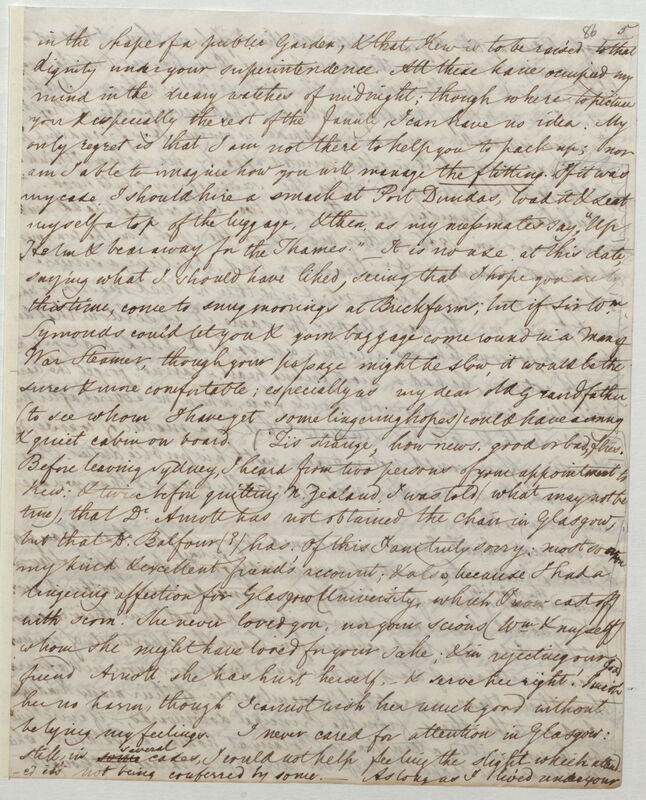 86 5
in the shape of a public Garden, & that Kew is to be raised to that
dignity under your superintendence. All these have occupied my
mind in the dreary watches of midnight; though where to picture
you & especially the rest of the family I can have no idea. My
only regret is that I am not there to help you to pack up; nor
am I able to imagine how you will manage the flitting. If it was
my case I should hire a smack at Port Dundas, load it & seat
myself a top of the luggage, & then, as my messmates say, "Up
Helm & bear away for the Thames." — It is no use at this date
saying what I should have liked, seeing that I hope you are by
this time, come to snug moorings at Brickfarm; but if Sir Wm.
Symonds could let you & your baggage come round in a Man of
War Steamer, though your passage might be slow it would be the
surer & more comfortable; especially as my dear old grandfather
(to see whom I have yet some lingering hopes) could have a snug
& quiet cabin on board. ('Tis strange, how news, good or bad, flies.
Before leaving Sydney, I heard from two persons of your appointment to
Kew: & twice before quitting N. Zealand I was told (what may not be
true), that Dr. Arnott has not obtained the chair in Glasgow,
but that Dr. Balfour (?) has. Of this I am truly sorry: most so on
my kind & excellent friend's account; & also, because I had a
lingering affection for Glasgow University, which I now cast off
with scorn. She never loved you, nor your scions (Wm. & myself)
whom she might have loved for your sake; & in rejecting your good
friend Arnott she has hurt herself — & serve her right! I wish
her no harm, though I cannot wish her much good without
belying my feelings. I never cared for attention in Glasgow:
still, in several cases, I could not help feeling the slight which attend
-ed its not being conferred by some. — As long as I lived under your